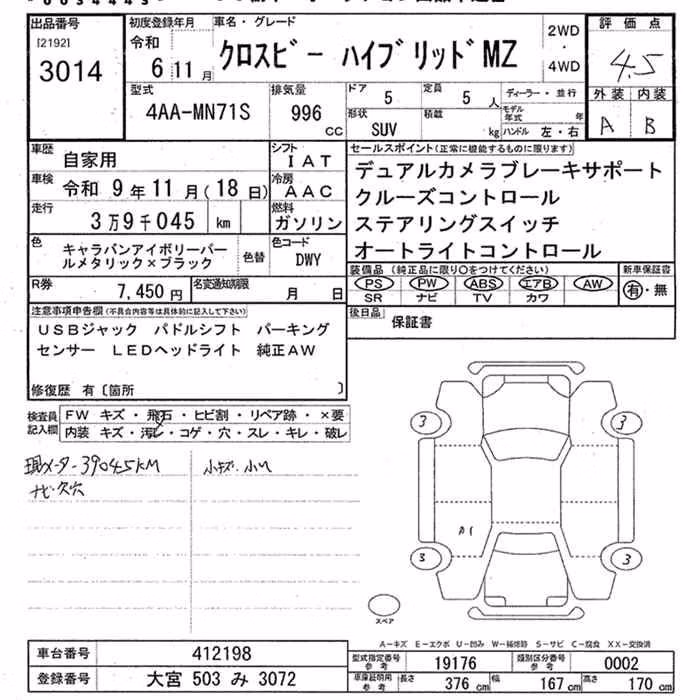 出品番号
[2192]
3014
初度登録年月
令和
6 11 月
車名・グレード
クロスビー ハイブリッドMZ
2WD
・
4WD
評価点
4.5
外装 内装
A B
型式
4AA-MN71S
排気量
996
CC
ドア
5
定員
5 人
形状
SUV
積載
kg
ディーラー・並行
モデル年式 年
ハンドル 左・右
車歴
自家用
シフト
IAT
車検
令和 9 年 11 月(18 日)
冷房
AAC
走行
3 万 9 千 045 km
燃料
ガソリン
色
キャラバンアイボリーパー
ルメタリック×ブラック
色替
色コード
DWY
R券
7,450 円
名変通知期限
月 日
セールスポイント(正常に機能するものに限ります)
デュアルカメラブレーキサポート
クルーズコントロール
ステアリングスイッチ
オートライトコントロール
装備品 (純正品に限り○をつけてください)
PS PW ABS エアB AW
SR ナビ TV カワ
新車保証書
有・無
後日品
保証書
注意事項申告欄(不具合内容等は具体的に記入して下さい)
USBジャック パドルシフト パーキング
センサー LEDヘッドライト 純正AW
修復歴 有〔箇所 〕
検査員
記入欄
FW キズ・飛石・ヒビ割・リペア跡・×要
内装 キズ・汚レ・コゲ・穴・スレ・キレ・破レ
現メーター39045KM
小キズ・小U
ナビ欠穴
3
3
カイ
3
3
スペア
A-キズ E-エクボ U-凹み W-補修跡 S-サビ C-腐食 XX-交換済
車台番号
412198
登録番号
大宮 503 み 3072
型式指定番号
参考
19176
類別区分番号
参考
0002
車庫証明用
参考
長さ 376 cm
幅 167 cm
高さ 170 cm